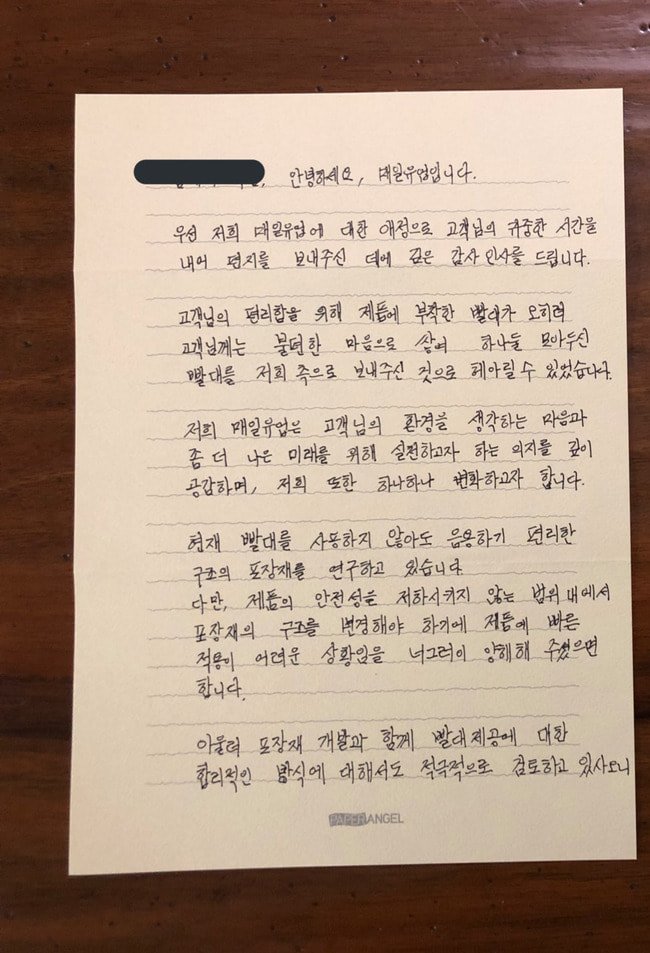 안녕하세요, 매일유업입니다.
우선 저희 매일유업에 대한 애정으로 고객님의 귀중한 시간을
내어 편지를 보내주신 데에 깊은 감사 인사를 드립니다.
고객님의 편리함을 위해 제품에 부착한 빨대가 오히려
고객님께는 불편한 마음으로 쌓여 하나둘 모아두신
빨대를 저희 쪽으로 보내주신 것으로 헤아릴 수 있었습니다.
저희 매일유업은 고객님의 환경을 생각하는 마음과
좀 더 나은 미래를 위해 실천하고자 하는 의지를 깊이
공감하며, 저희 또한 하나하나 변화하고자 합니다.
현재 빨대를 사용하지 않아도 음용하기 편리한
구조의 포장재를 연구하고 있습니다.
다만, 제품의 안전성을 저하시키지 않는 범위 내에서
포장재의 구조를 변경해야 하기에 제품에 빠른
적용이 어려운 상황임을 너그러이 양해해 주셨으면
합니다.
아울러 포장재 개발과 함께 빨대 제공에 대한
합리적인 방식에 대해서도 적극적으로 검토하고 있사오니
PAPER ANGEL